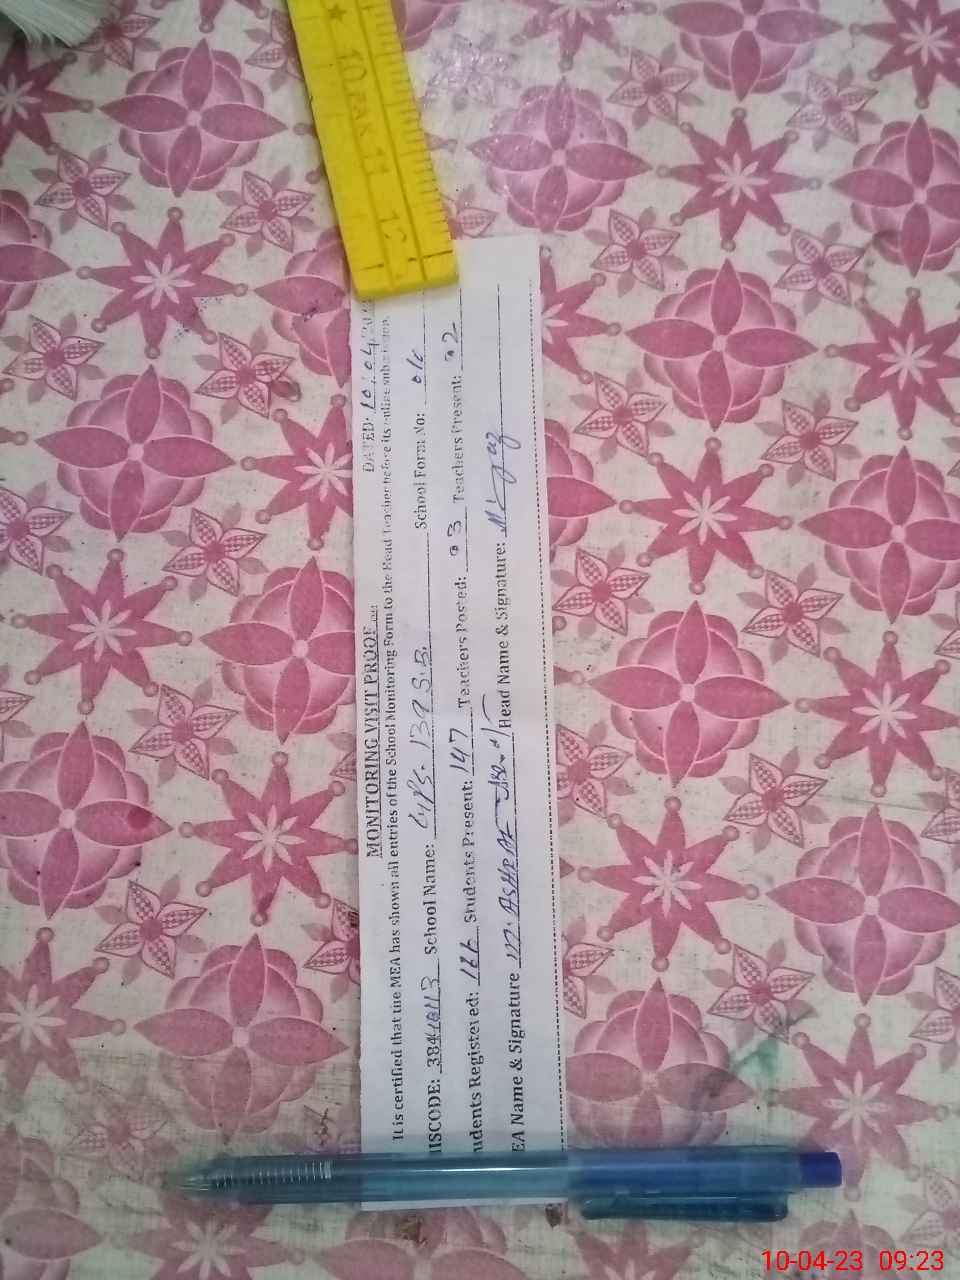 10 PAK 11 12
DATED: 10.04.20
MONITORING VISIT PROOF
It is certified that the MEA has shown all entries of the School Monitoring Form to the Head Teacher before its online submission.
IISCODE: 38410113 School Name: GPS. 139 S.B. School Form No:
udents Registered: 166 Students Present: 147 Teachers Posted: 03 Teachers Present: 02
EA Name & Signature M. ASHRAF Head Name & Signature:
10-04-23 09:23